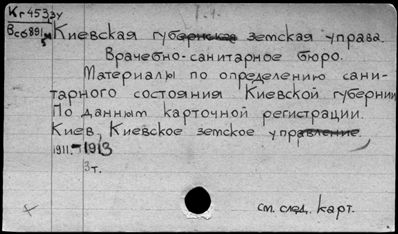 Кг453зу
Вс6891
Киевская губернская земская управа.
Врачебно-санитарное бюро.
Материалы по определению сани-
тарного состояния Киевской губернии
По данным карточной регистрации.
Киев, Киевское земское управление.
1911.-1913
3т.
см. след. карт.